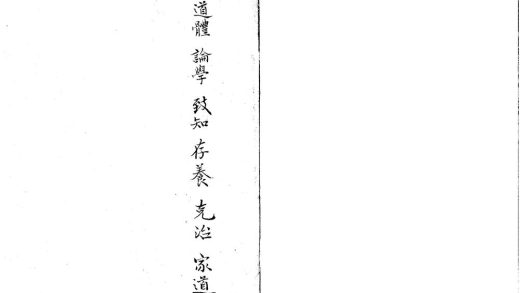 道體 論學 致知 存養 克治 家道